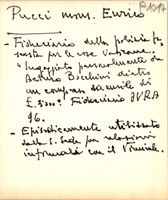 Pucci mons. Enrico
- Fiduciario della polizia po
sta per le cose Vaticane.
suggerito personalmente da
Arturo Bocchini dietro
un compenso mensile di
£. 3000. Fiduciario OVRA
96.
- Episodicamente utilizzato
dalla S. Sede per relazioni
informali con il Viminale.